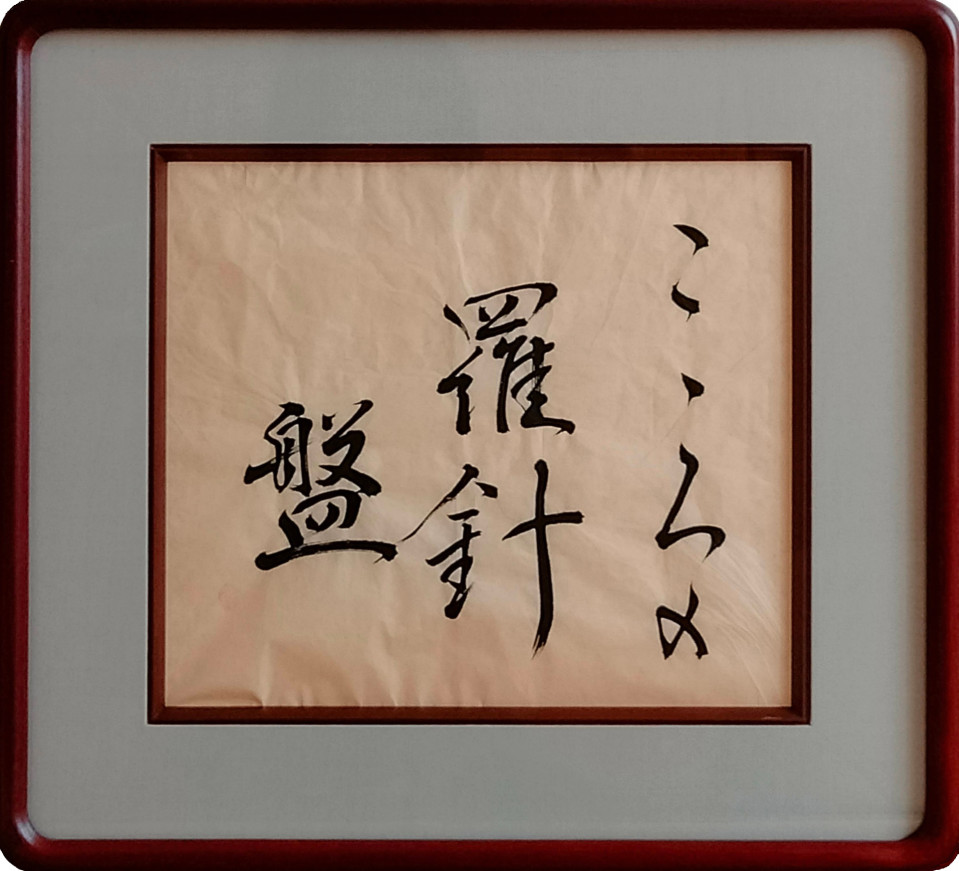 こころの
羅針
盤